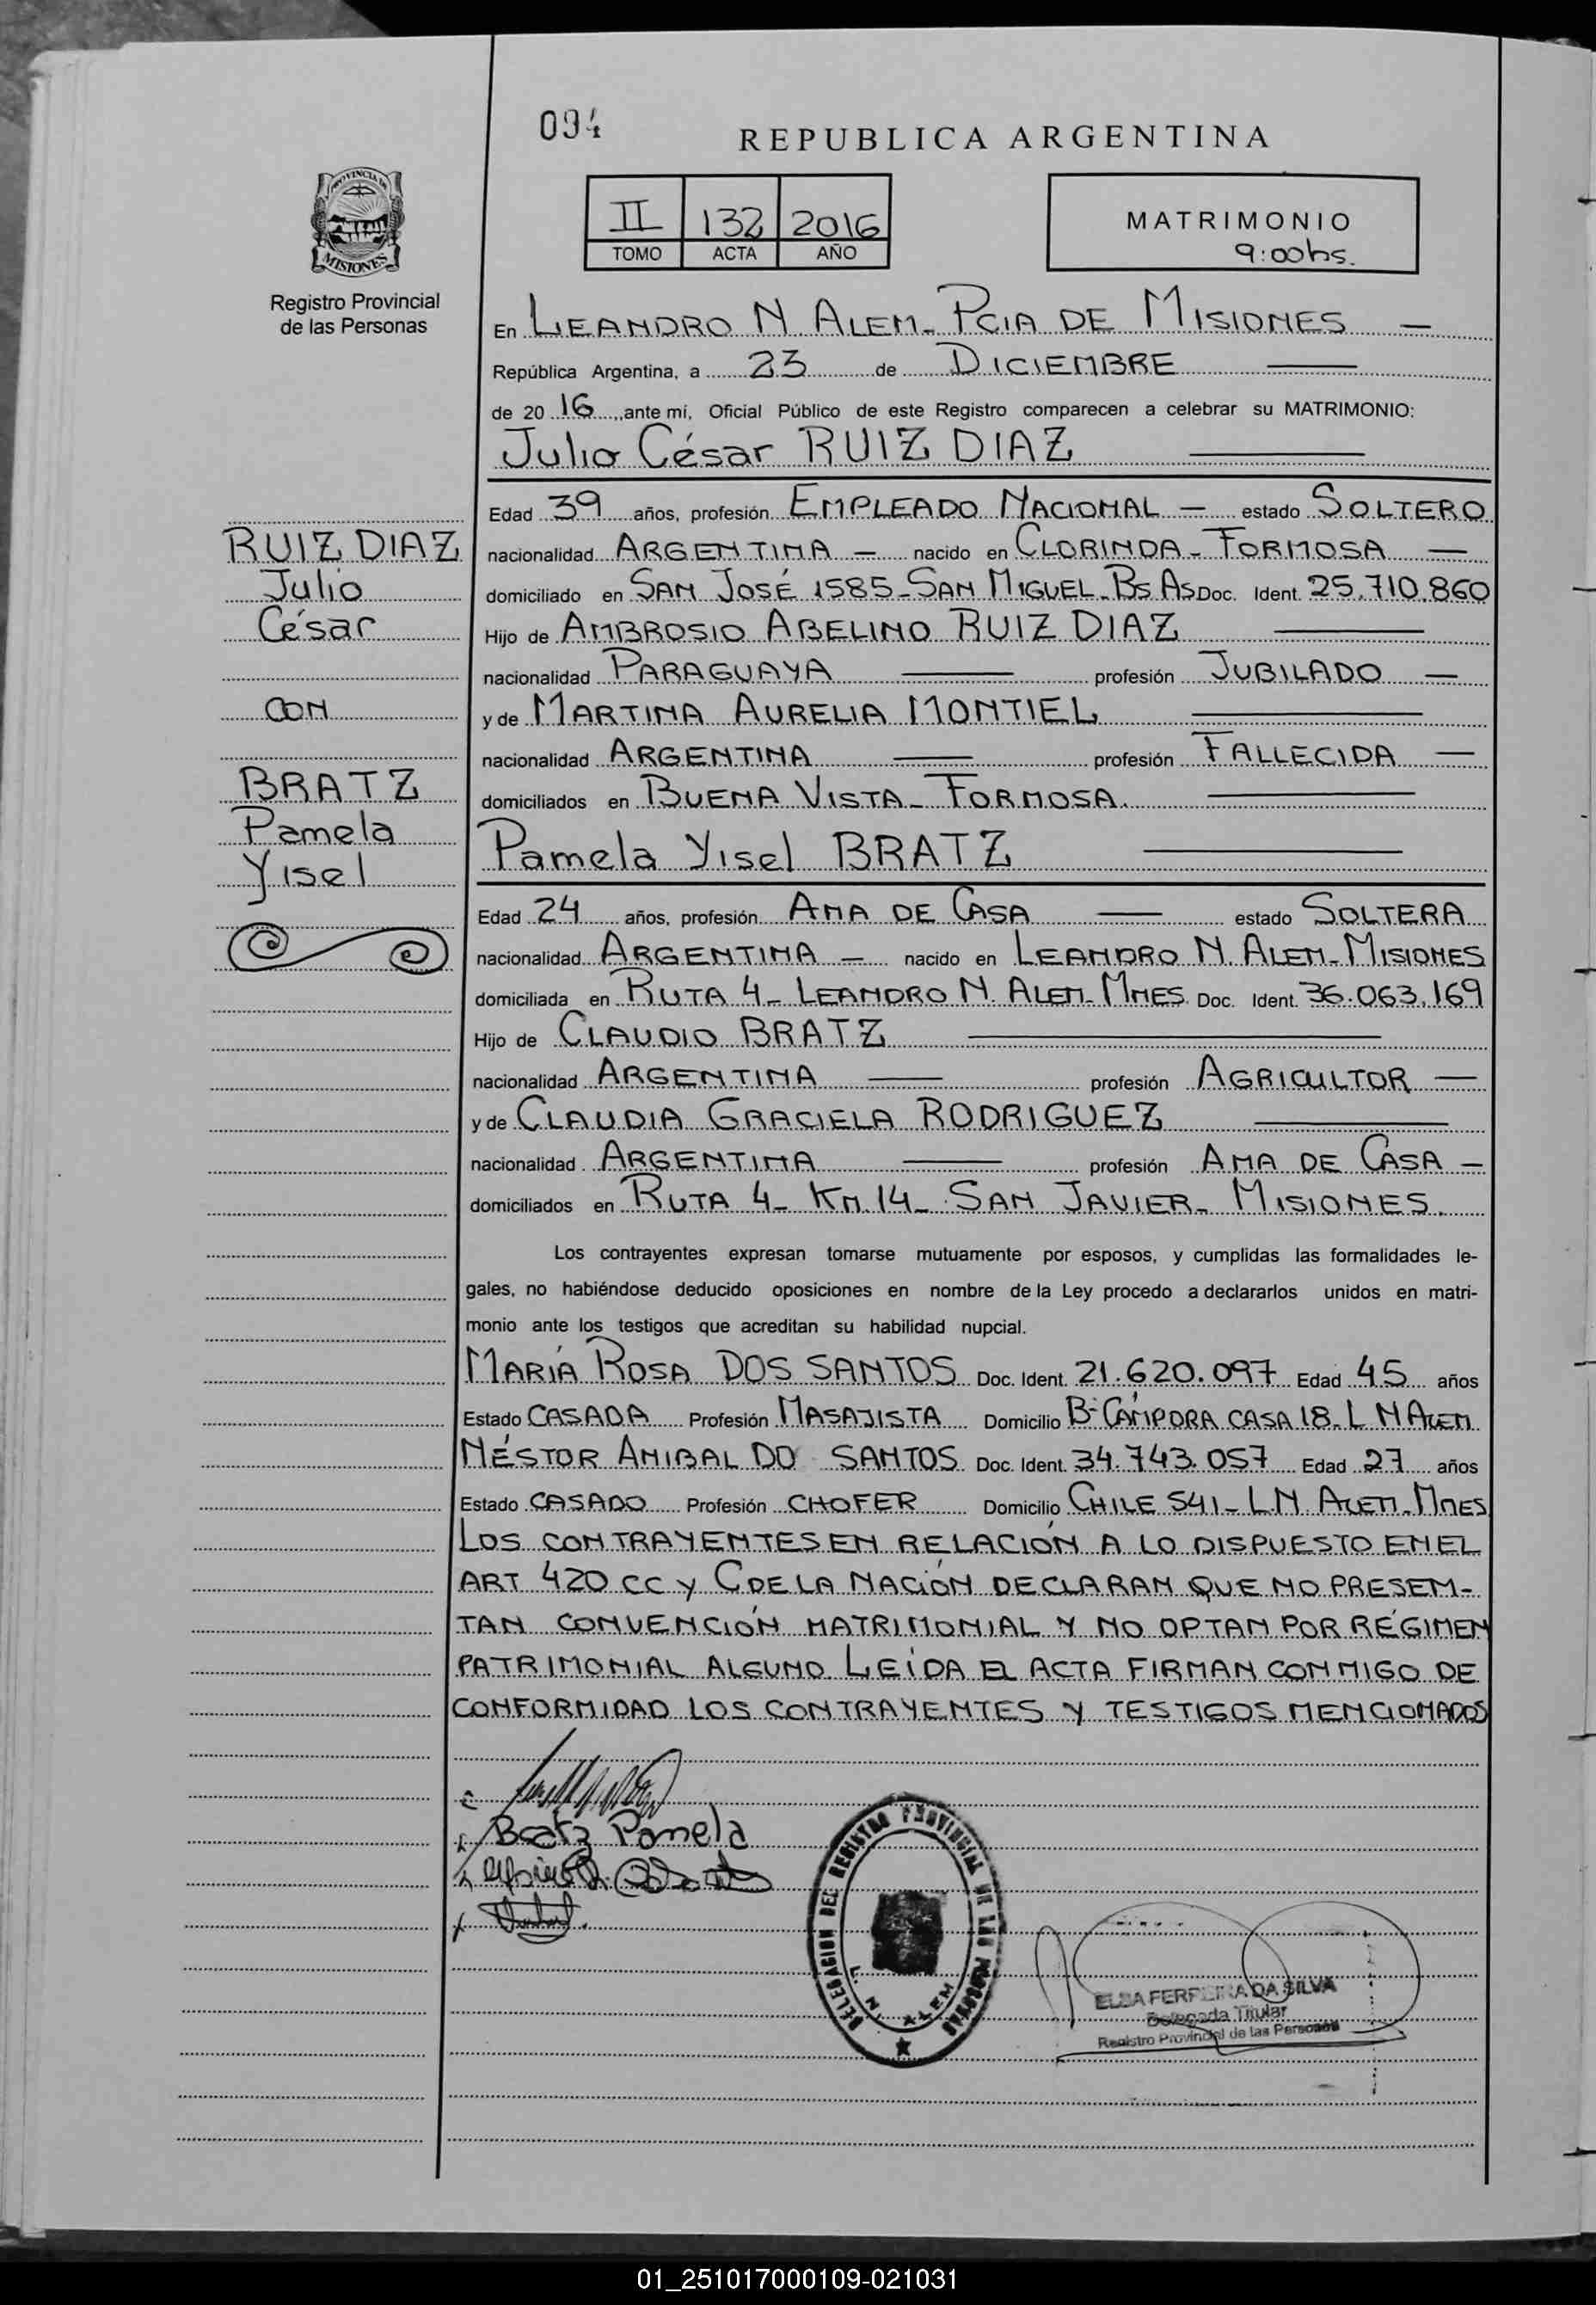 094
REPUBLICA ARGENTINA
PROVINCIA DE
MISIONES
Registro Provincial
de las Personas
II 132 2016
TOMO ACTA AÑO
MATRIMONIO
9:00hs.
En LEANDRO N ALEM - PCIA DE MISIONES —
República Argentina, a 23 de DICIEMBRE
de 20 16, ante mí, Oficial Público de este Registro comparecen a celebrar su MATRIMONIO:
Julio César RUIZ DIAZ
Edad 39 años, profesión EMPLEADO NACIONAL — estado SOLTERO
nacionalidad ARGENTINA — nacido en CLORINDA - FORMOSA —
domiciliado en SAN JOSÉ 1585 - SAN MIGUEL - BS AS Doc. Ident. 25.710.860
Hijo de AMBROSIO ABELINO RUIZ DIAZ
nacionalidad PARAGUAYA profesión JUBILADO —
y de MARTINA AURELIA MONTIEL
nacionalidad ARGENTINA profesión FALLECIDA —
domiciliados en BUENA VISTA - FORMOSA.
Pamela Yisel BRATZ
RUIZ DIAZ
Julio
César
CON
BRATZ
Pamela
Yisel
Edad 24 años, profesión AMA DE CASA — estado SOLTERA
nacionalidad ARGENTINA — nacido en LEANDRO N. ALEM - MISIONES
domiciliada en RUTA 4 - LEANDRO N. ALEM - MNES. Doc. Ident. 36.063.169
Hijo de CLAUDIO BRATZ
nacionalidad ARGENTINA — profesión AGRICULTOR —
y de CLAUDIA GRACIELA RODRIGUEZ
nacionalidad ARGENTINA — profesión AMA DE CASA —
domiciliados en RUTA 4 - KM. 14 - SAN JAVIER - MISIONES.
Los contrayentes expresan tomarse mutuamente por esposos, y cumplidas las formalidades le-
gales, no habiéndose deducido oposiciones en nombre de la Ley procedo a declararlos unidos en matri-
monio ante los testigos que acreditan su habilidad nupcial.
MARÍA ROSA DOS SANTOS Doc. Ident. 21.620.097 Edad 45 años
Estado CASADA Profesión MASAJISTA Domicilio B° CÁMPORA CASA 18 - L N ALEM
NÉSTOR ANIBAL DO SANTOS Doc. Ident. 34.743.057 Edad 27 años
Estado CASADO Profesión CHOFER Domicilio CHILE 541 - L.N. ALEM - MNES
LOS CONTRAYENTES EN RELACIÓN A LO DISPUESTO EN EL
ART 420 CC Y C DE LA NACIÓN DECLARAN QUE NO PRESEN-
TAN CONVENCIÓN MATRIMONIAL Y NO OPTAN POR RÉGIMEN
PATRIMONIAL ALGUNO. LEÍDA EL ACTA FIRMAN CONMIGO DE
CONFORMIDAD LOS CONTRAYENTES Y TESTIGOS MENCIONADOS
Bratz Pamela
DELEGACION DEL REGISTRO PROVINCIAL DE LAS PERSONAS
L. N. ALEM
ELSA FERREIRA DA SILVA
Delegada Titular
Registro Provincial de las Personas
01_251017000109-021031